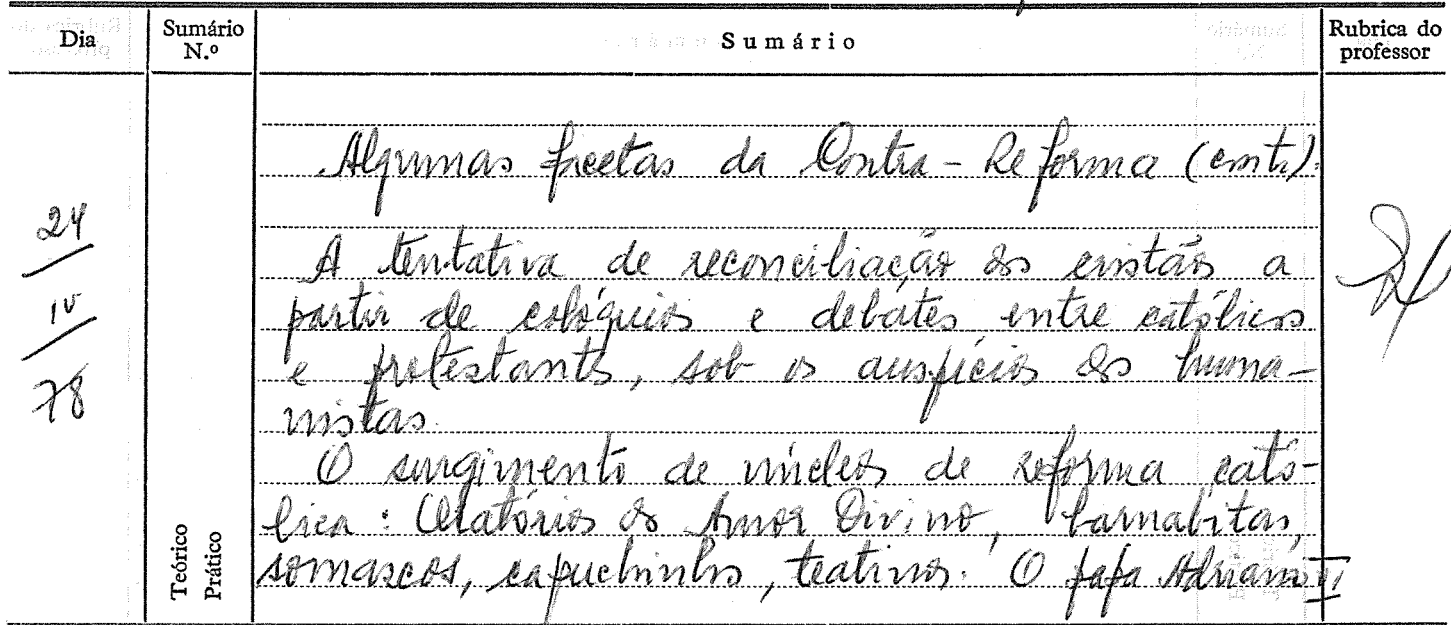 Dia
Sumário
N.º
Sumário
Rubrica do
professor
Algumas facetas da Contra-Reforma (cont.).
24
IV
78
A tentativa de reconciliação dos cristãos a
partir de colóquios e debates entre católicos
e protestantes, sob os auspícios dos huma-
nistas.
O surgimento de núcleos de reforma cató-
lica: Oratórios do Amor Divino, barnabitas,
somascos, capuchinhos, teatinos. O papa Adriano VI
Teórico
Prático